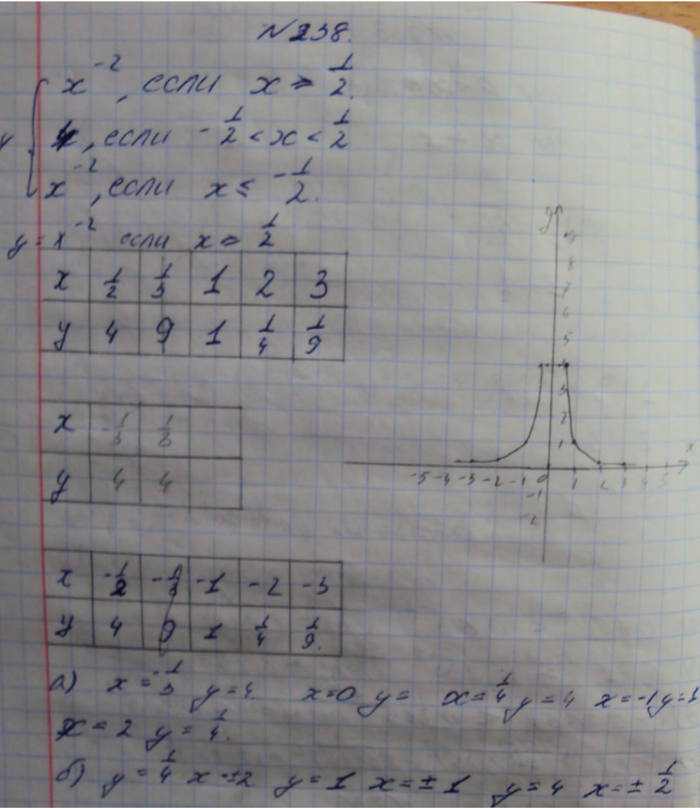 N 238.
y { x⁻², если x ⩾ 1/2.
4, если -1/2 < x < 1/2
x⁻², если x ≤ -1/2.
y = x⁻² если x ⩾ 1/2
x 1/2 1/3 1 2 3
y 4 9 1 1/4 1/9
x -1/3 1/3
y 4 4
x -1/2 -1/3 -1 -2 -3
y 4 9 1 1/4 1/9.
y 9 8 7 6 5 4 3 2 1
-5 -4 -3 -2 -1 0 1 2 3 4 5 x
-1
-2
а) x = -1/3 y = 4. x = 0 y = x = 1/4 y = 4 x = -1 y = 1
x = 2 y = 1/4.
б) y = 1/4 x = ±2 y = 1 x = ± 1 y = 4 x = ± 1/2